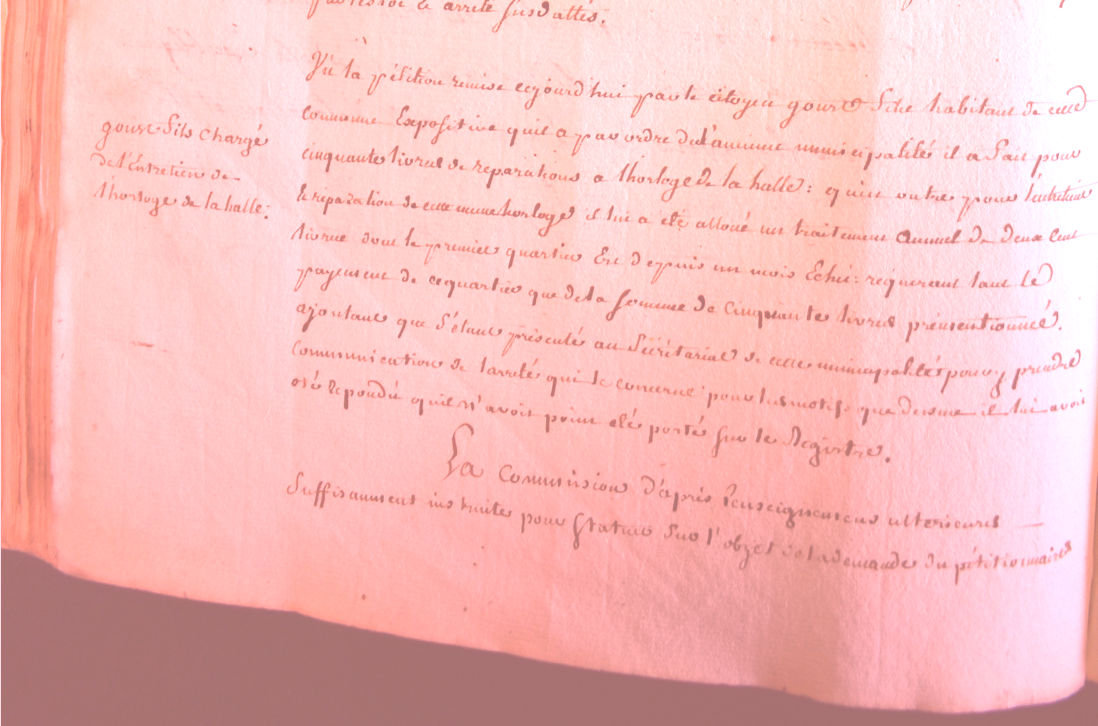 arrêté susd attés.
gourc fils chargé
de l'Entretien de
l'horloge de la halle:
Vû la pétition remise cejourd'hui par le citoyen gourd fils habitant de cette
commune Expositive quil a par ordre de l'ancienne municipalité il a fait pour
cinquante livres de réparations a lhorloge de la halle: qu'en outre pour l'entretien
& réparation de cette meme horloge il lui a eté alloué un traitement annuel de deux cent
livres dont le premier quartier Est depuis un mois Echu: requerant tant le
payement de cequartier que dela somme de Cinquante livres prémentionnée.
ajoutant que s'étant présenté au Sécrétariat de cette municipalité pour y prendre
communication de larreté qui le concerne pour les motifs que dessus il lui avoit
eté Repondu quil n'avoit point eté porté sur le Registre.
La Commission d'après renseignemens ulterieures
suffisamment instruite pour statuer sur l'objet de la demande du pétitionnaire